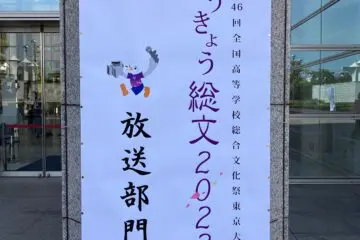 46回全国高等学校総合文化祭東京大
うきょう総文202
放送部門